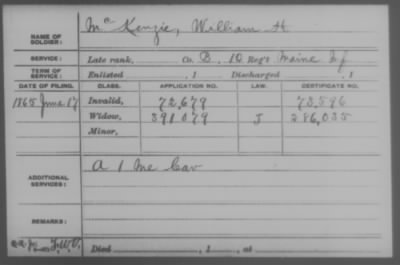 NAME OF SOLDIER: McKenzie, William H
SERVICE: Late rank, Co. B, 10 Reg't Maine Inf
TERM OF SERVICE: Enlisted , 1 Discharged , 1
DATE OF FILING. CLASS. APPLICATION NO. LAW. CERTIFICATE NO.
1865 June 17 Invalid, 72,679 73,596
Widow, 391079 J 286,035
Minor,
ADDITIONAL SERVICES: A 1 Me Cav
REMARKS:
Died , 1 , at